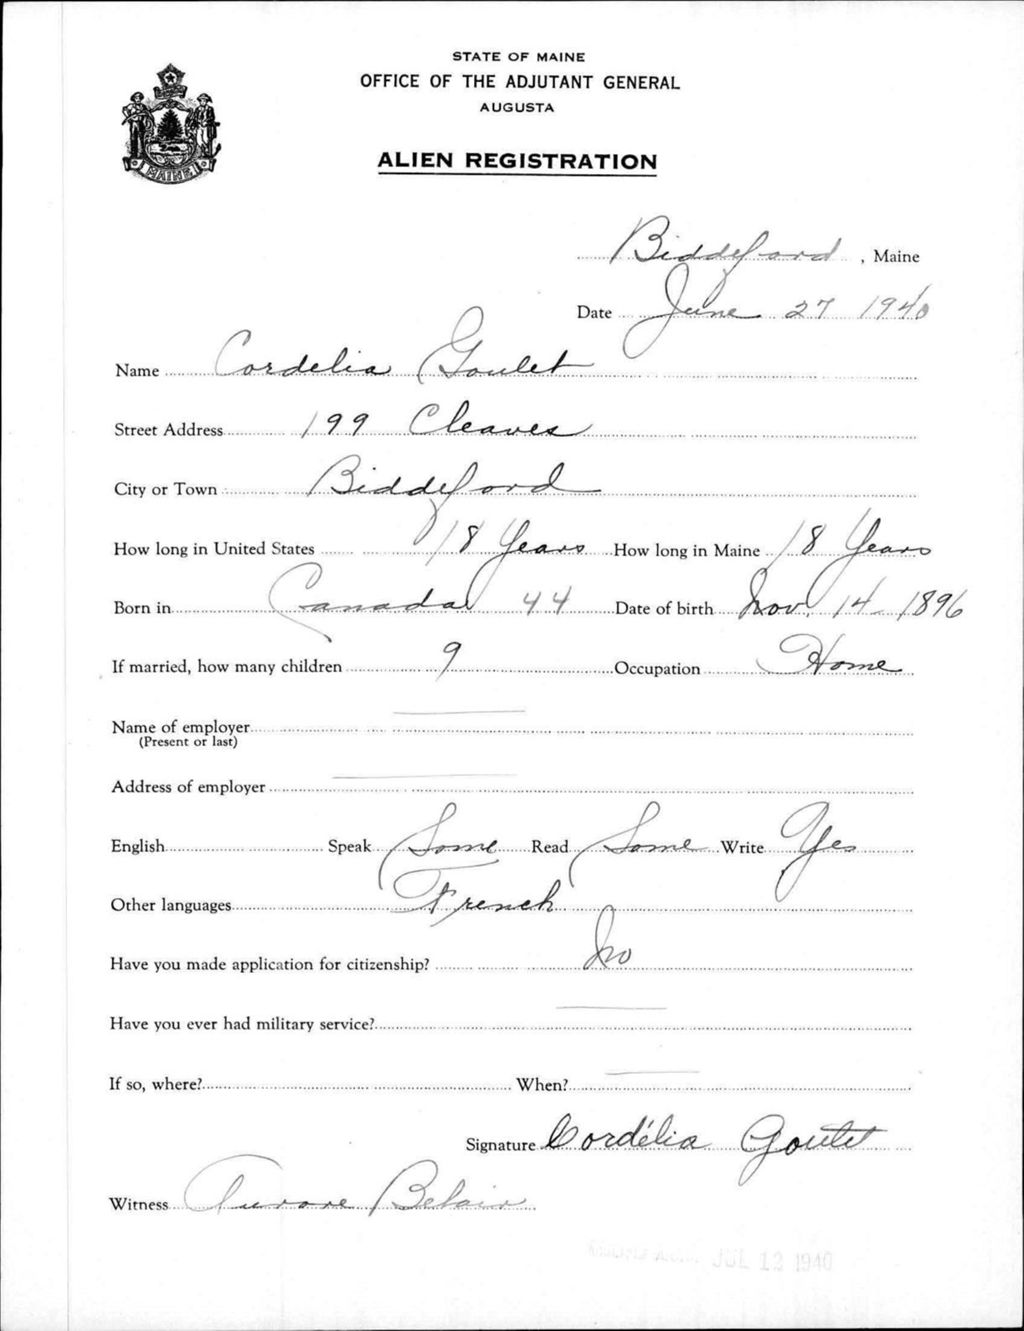 STATE OF MAINE
OFFICE OF THE ADJUTANT GENERAL
AUGUSTA
MAINE
ALIEN REGISTRATION
Biddeford, Maine
Date June 27 1940
Name Cordelia Goulet
Street Address 199 Cleaves
City or Town Biddeford
How long in United States 18 Years How long in Maine 18 Years
Born in Canada 44 Date of birth Nov. 14 1896
If married, how many children 9 Occupation Home
Name of employer
(Present or last)
Address of employer
English Speak Some Read Some Write Yes
Other languages French
Have you made application for citizenship? No
Have you ever had military service?
If so, where? When?
Signature Cordélia Goulet
Witness Aurore Belair
JUL 12 1940